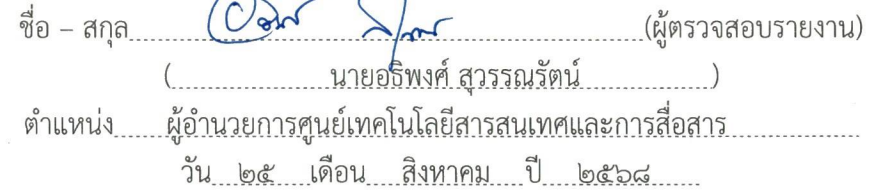 ชื่อ – สกุล (ผู้ตรวจสอบรายงาน)
(นายอธิพงศ์ สุวรรณรัตน์)
ตำแหน่ง ผู้อำนวยการศูนย์เทคโนโลยีสารสนเทศและการสื่อสาร
วัน ๒๕ เดือน สิงหาคม ปี ๒๕๖๘